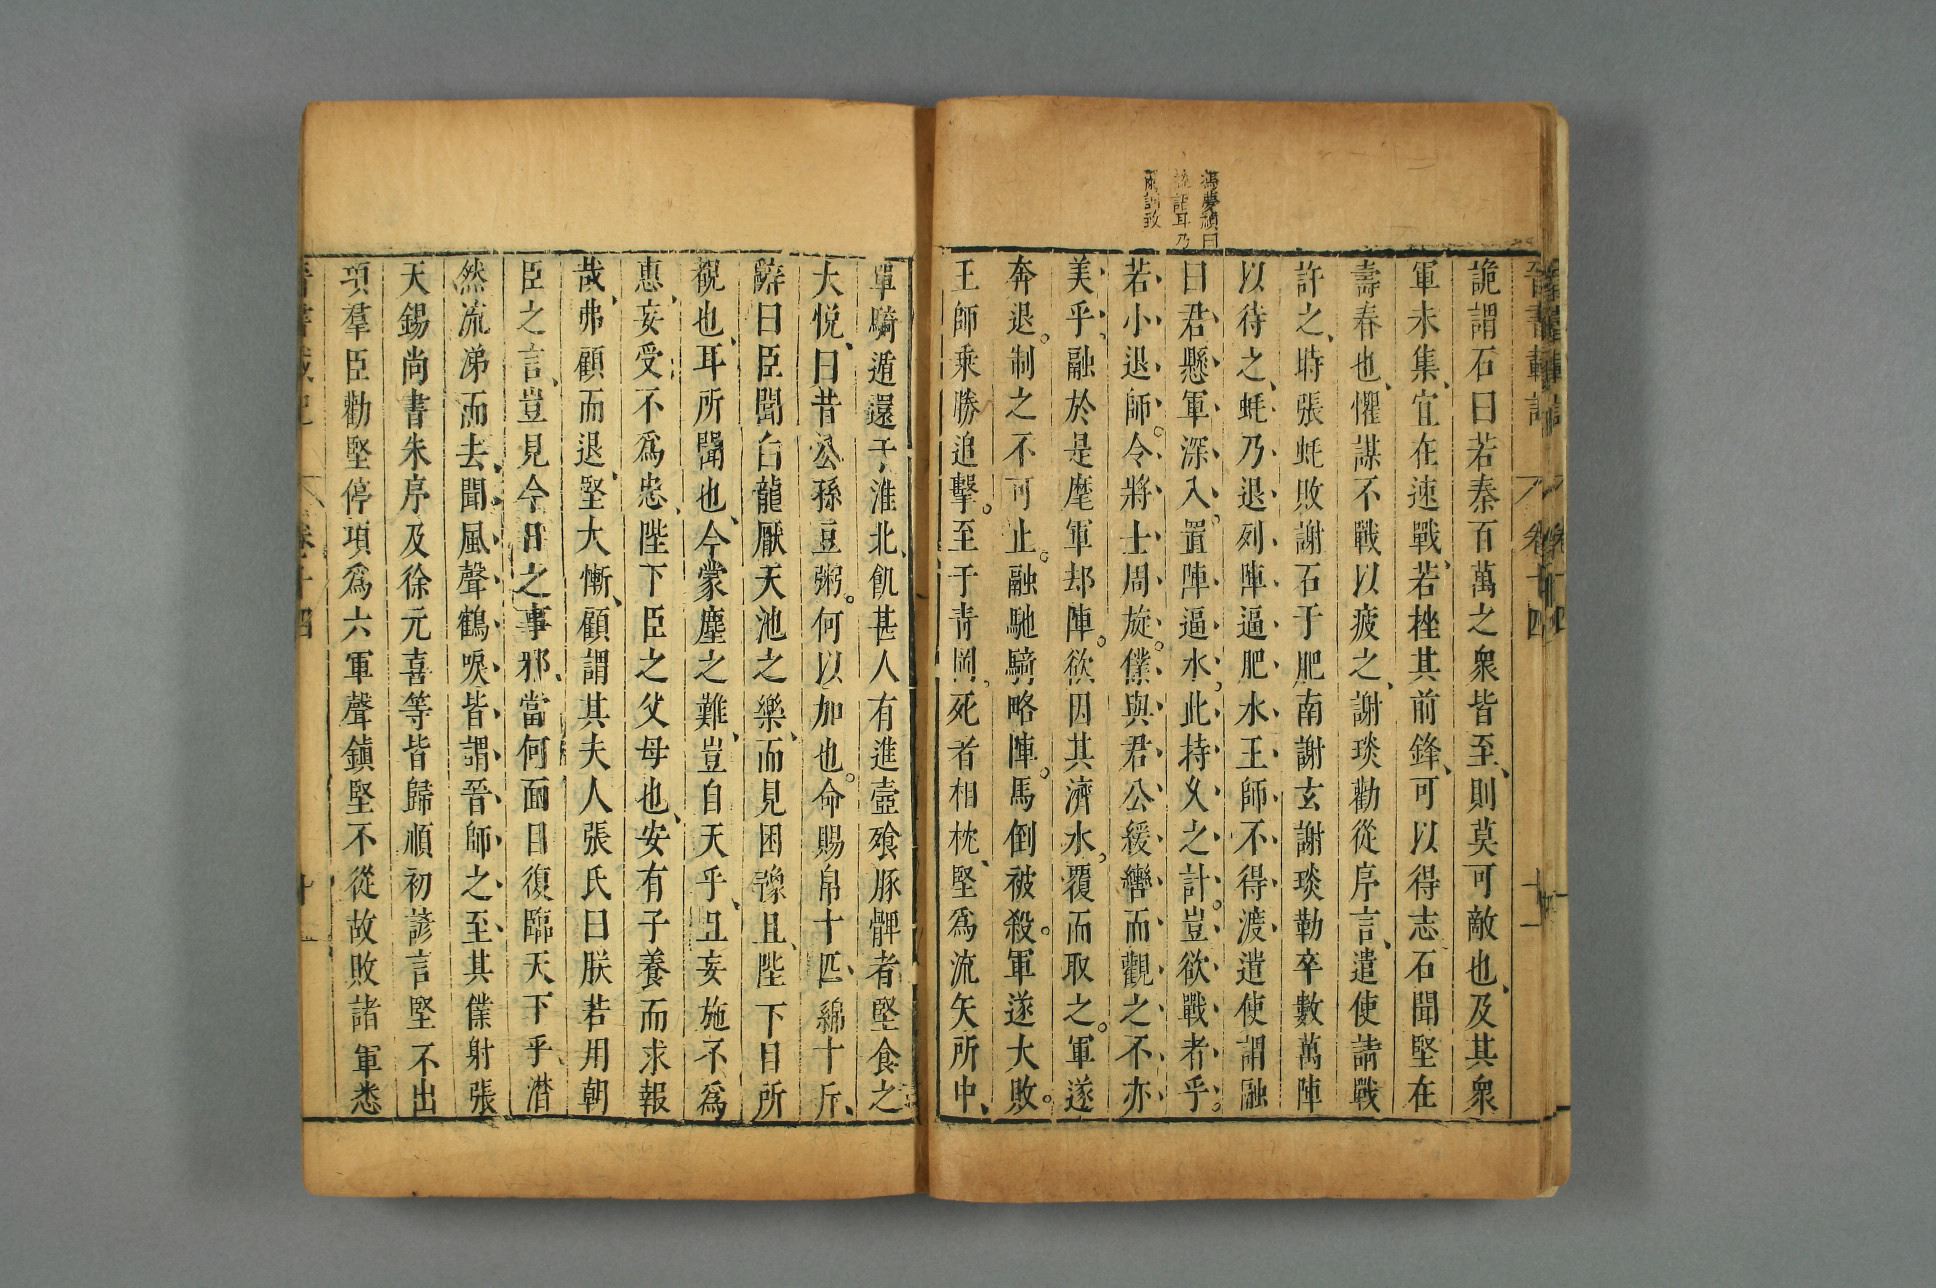 馮夢禎曰
詭耳乃
詭謂石曰若秦百萬之衆皆至則莫可敵也及其衆
軍未集宜在速戰若挫其前鋒可以得志石聞堅在
壽春也懼謀不戰以疲之謝琰勸從序言遣使請戰
許之時張蚝敗謝石于肥南謝玄謝琰勒卒數萬陣
以待之蚝乃退列陣逼肥水王師不得渡遣使謂融
曰君懸軍深入。置陣逼水。此持久之計。豈欲戰者乎。
若小退師。令將士周旋。僕與君公緩轡而觀之不亦
美乎融於是麾軍却陣。欲因其濟水。覆而取之。軍遂
奔退。制之不可止。融馳騎略陣。馬倒被殺。軍遂大敗。
王師乘勝追擊。至于青岡。死者相枕、堅爲流矢所中、
單騎遁還于淮北、飢甚人有進壺飱豚髀者堅食之
大悅、曰昔公孫豆粥。何以加也。命賜帛十匹、綿十斤、
辭曰臣聞白龍厭天池之樂、而見困豫且、陛下目所
覩也、耳所聞也、今蒙塵之難、豈自天乎、且妄施不爲
惠、妄受不爲忠、陛下臣之父母也、安有子養而求報
哉、弗顧而退、堅大慚、顧謂其夫人張氏曰朕若用朝
臣之言、豈見今日之事邪、當何面目復臨天下乎、潸
然流涕而去、聞風聲鶴唳皆謂晉師之至其僕射張
天錫尚書朱序及徐元喜等皆歸順初諺言堅不出
項羣臣勸堅停項爲六軍聲鎮堅不從故敗諸軍悉